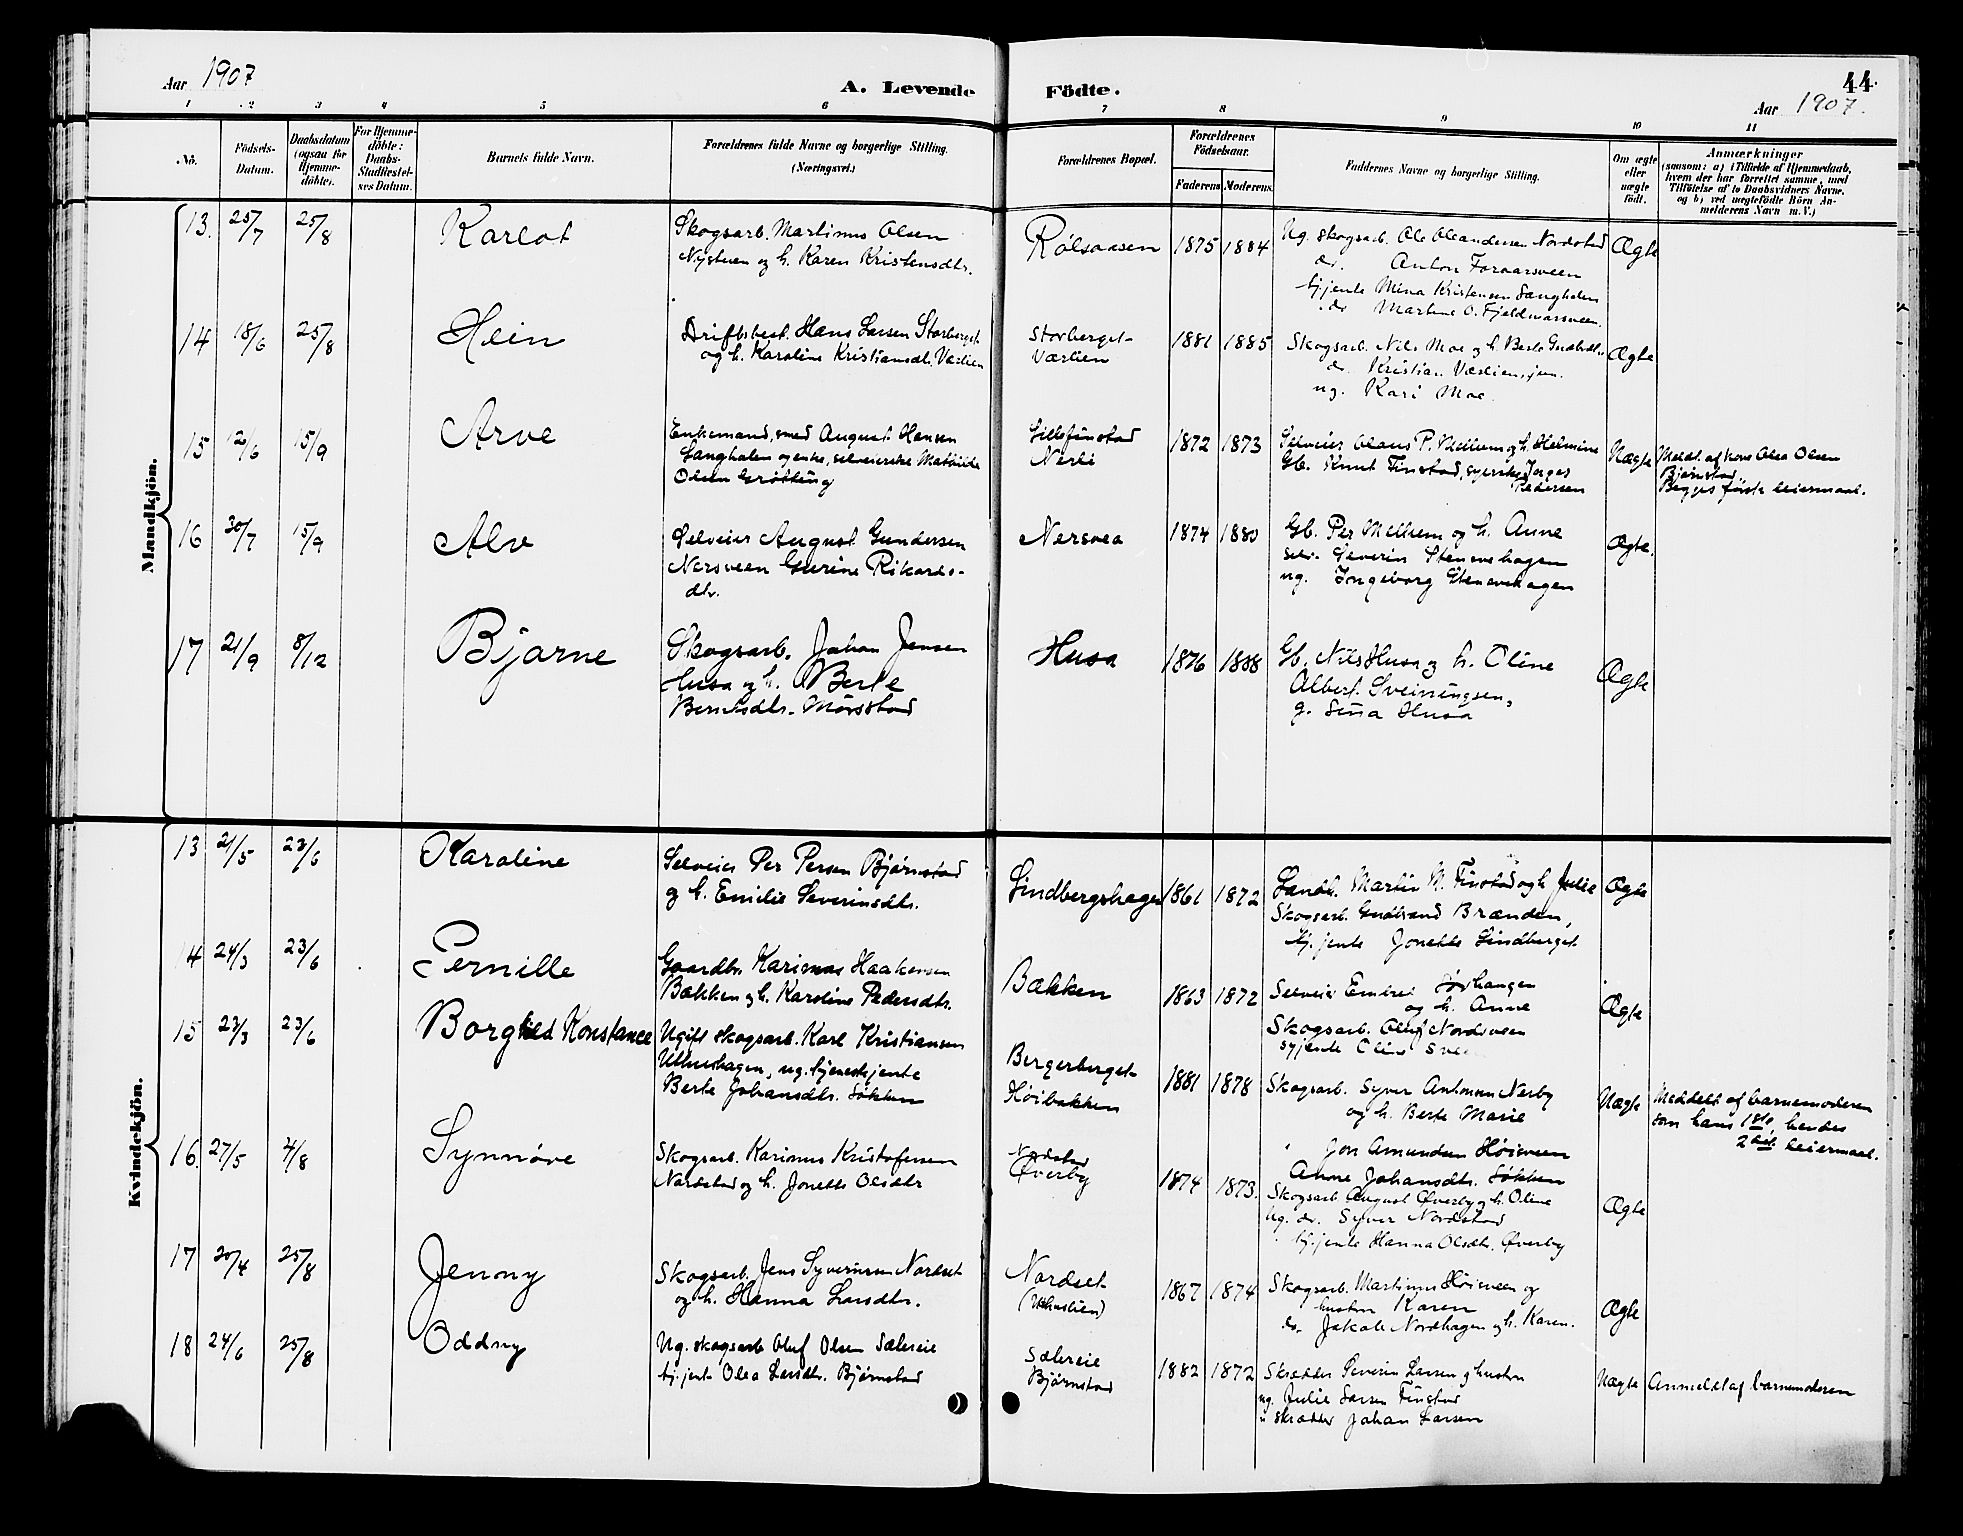 Aar 1907
A. Levende Födte.
44.
Aar 1907.
1 2 3 4 5 6 7 8 9 10 11
No.
Födsels-Datum.
Daabsdatum (ogsaa for Hjemme-döbte).
For Hjemme-döbte: Daabs-Stadfæstel-ses Datum.
Barnets fulde Navn.
Forældrenes fulde Navne og borgerlige Stilling. (Næringsvei.)
Forældrenes Bopæl.
Forældrenes Födselsaar.
Faderens Moderens
Faddernes Navne og borgerlige Stilling.
Om ægte eller uægte födt.
Anmærkninger
(saasom: a) i Tilfælde af Hjemmedaab,
hvem der har forrettet samme, med
Tilföielse af to Daabsvidners Navne,
og b) ved uægtefödte Börn An-
melderens Navn m. V.)
Mandkjön.
13. 25/7 25/8 Karlot
Skogsarb. Martinus Olsen
Nystuen og h. Karen Kristensdtr.
Rølsaasen 1875 1884
Ug. skogsarb. Ole Oleandersen Nordstad
do. Anton Foraarsveen
tj.jente Mina Kristensen Langholen
do Martine O. Fjeldvarsveen.
Ægte
14 18/6 25/8 Hein
Driftsbest. Hans Larsen Storberget
og h. Karoline Kristiansdtr. Værlien
Storberget-
Værlien 1881 1885
Skogsarb. Nils Moe og h. Berte Gudbr.dtr.
do. Kristian Værlien, jun.
ug. Kari Moe.
Ægte
15 12/6 15/9 Arve
Enkemand, smed August Hansen
Langholen og enke, selveierske Mathilde
Olsen Grøtting
Lillefinstad
Nerli 1872 1873
Selveier Olaus P. Melhem og h. Helmine
Gb. Knut Finstad, syerske Inga
Pedersen
Uægte
Meldt af kone Olea Olsen
Bjørnstad
Begges første leiermaal.
16 30/7 15/9 Alv
Selveier August Gundersen
Nersveen Gurine Rikards-
dtr.
Nersvea 1874 1880
Gb. Per Melhem og h. Anne
selv. Severin Stenevehagen
ug. Ingeborg Stenevehagen
Ægte.
17 21/9 8/12 Bjarne
Skogsarb. Johan Jensen
Husa og h. Berte
Berntsdtr. Mørstad
Husa 1876 1888
Gb. Nils Husa og h. Oline
Albert Sveinungsen,
g. Sina Husa
Ægte
Kvindekjön.
13 21/5 23/6 Karoline
Selveier Per Persen Bjørnstad
og h. Emilie Severinsdtr.
Lindbergshagen 1861 1872
Landh. Martin M. Finstad og h. Julie
Skogsarb. Gudbrand Brænden,
tj.jente Jonette Lindberget
Ægte
14 24/3 23/6 Pernille
Gaardbr. Karinus Haakensen
Bækken og h. Karoline Pedersdtr.
Bækken 1863 1872
Selveier Embret Sørhangen
og h. Anne
Skogsarb. Oluf Nordsveen
syjente Oline
Ægte
15 23/3 23/6 Borghild Konstance
Ugift skogsarb. Karl Kristiansen
Ulhushagen, ug. tjenestjente
Berte Johansdtr. Løkken
Bergerberget-
Høibakken 1881 1878
Skogsarb. Syver Antonsen Nerby
og h. Berte Marie
" Jon Amundsen Høiveen
Anne Johansdtr. Løkken
Uægte
Meddelt af barnemoderen
som hans 1ste, hendes
2det leiermaal.
16. 27/5 4/8 Synnøve
Skogsarb. Karinus Kristofersen
Nordstad og h. Jonette Olsdtr
Nordstad
Øverby 1874 1873.
Skogsarb August Øverby og h. Oline
Ug. do. Syver Nordstad
tj.jente Hanna Olsdtr. Øverby
Ægte
17 20/4 25/8 Jenny
Skogsarb. Jens Syversen Nordset
og h. Hanna Larsdtr.
Nordset
(Ulhuslien) 1867 1874
Skogsarb. Martinus Høiveen og
hustru Karen
do. Jakob Nordhagen og h. Karen.
Ægte
18 24/6 25/8 Oddny
Ug. skogsarb Oluf Olsen Sætereie
tj.jente Olea Larsdtr. Bjørnstad
Sætereie
Bjørnstad 1882 1872
Skrædder Severin Larsen og hustru
ug. Julie Larsen Finstad
" skrædder Johan Larsen
Uægte
Anmeldt af barnemoderen